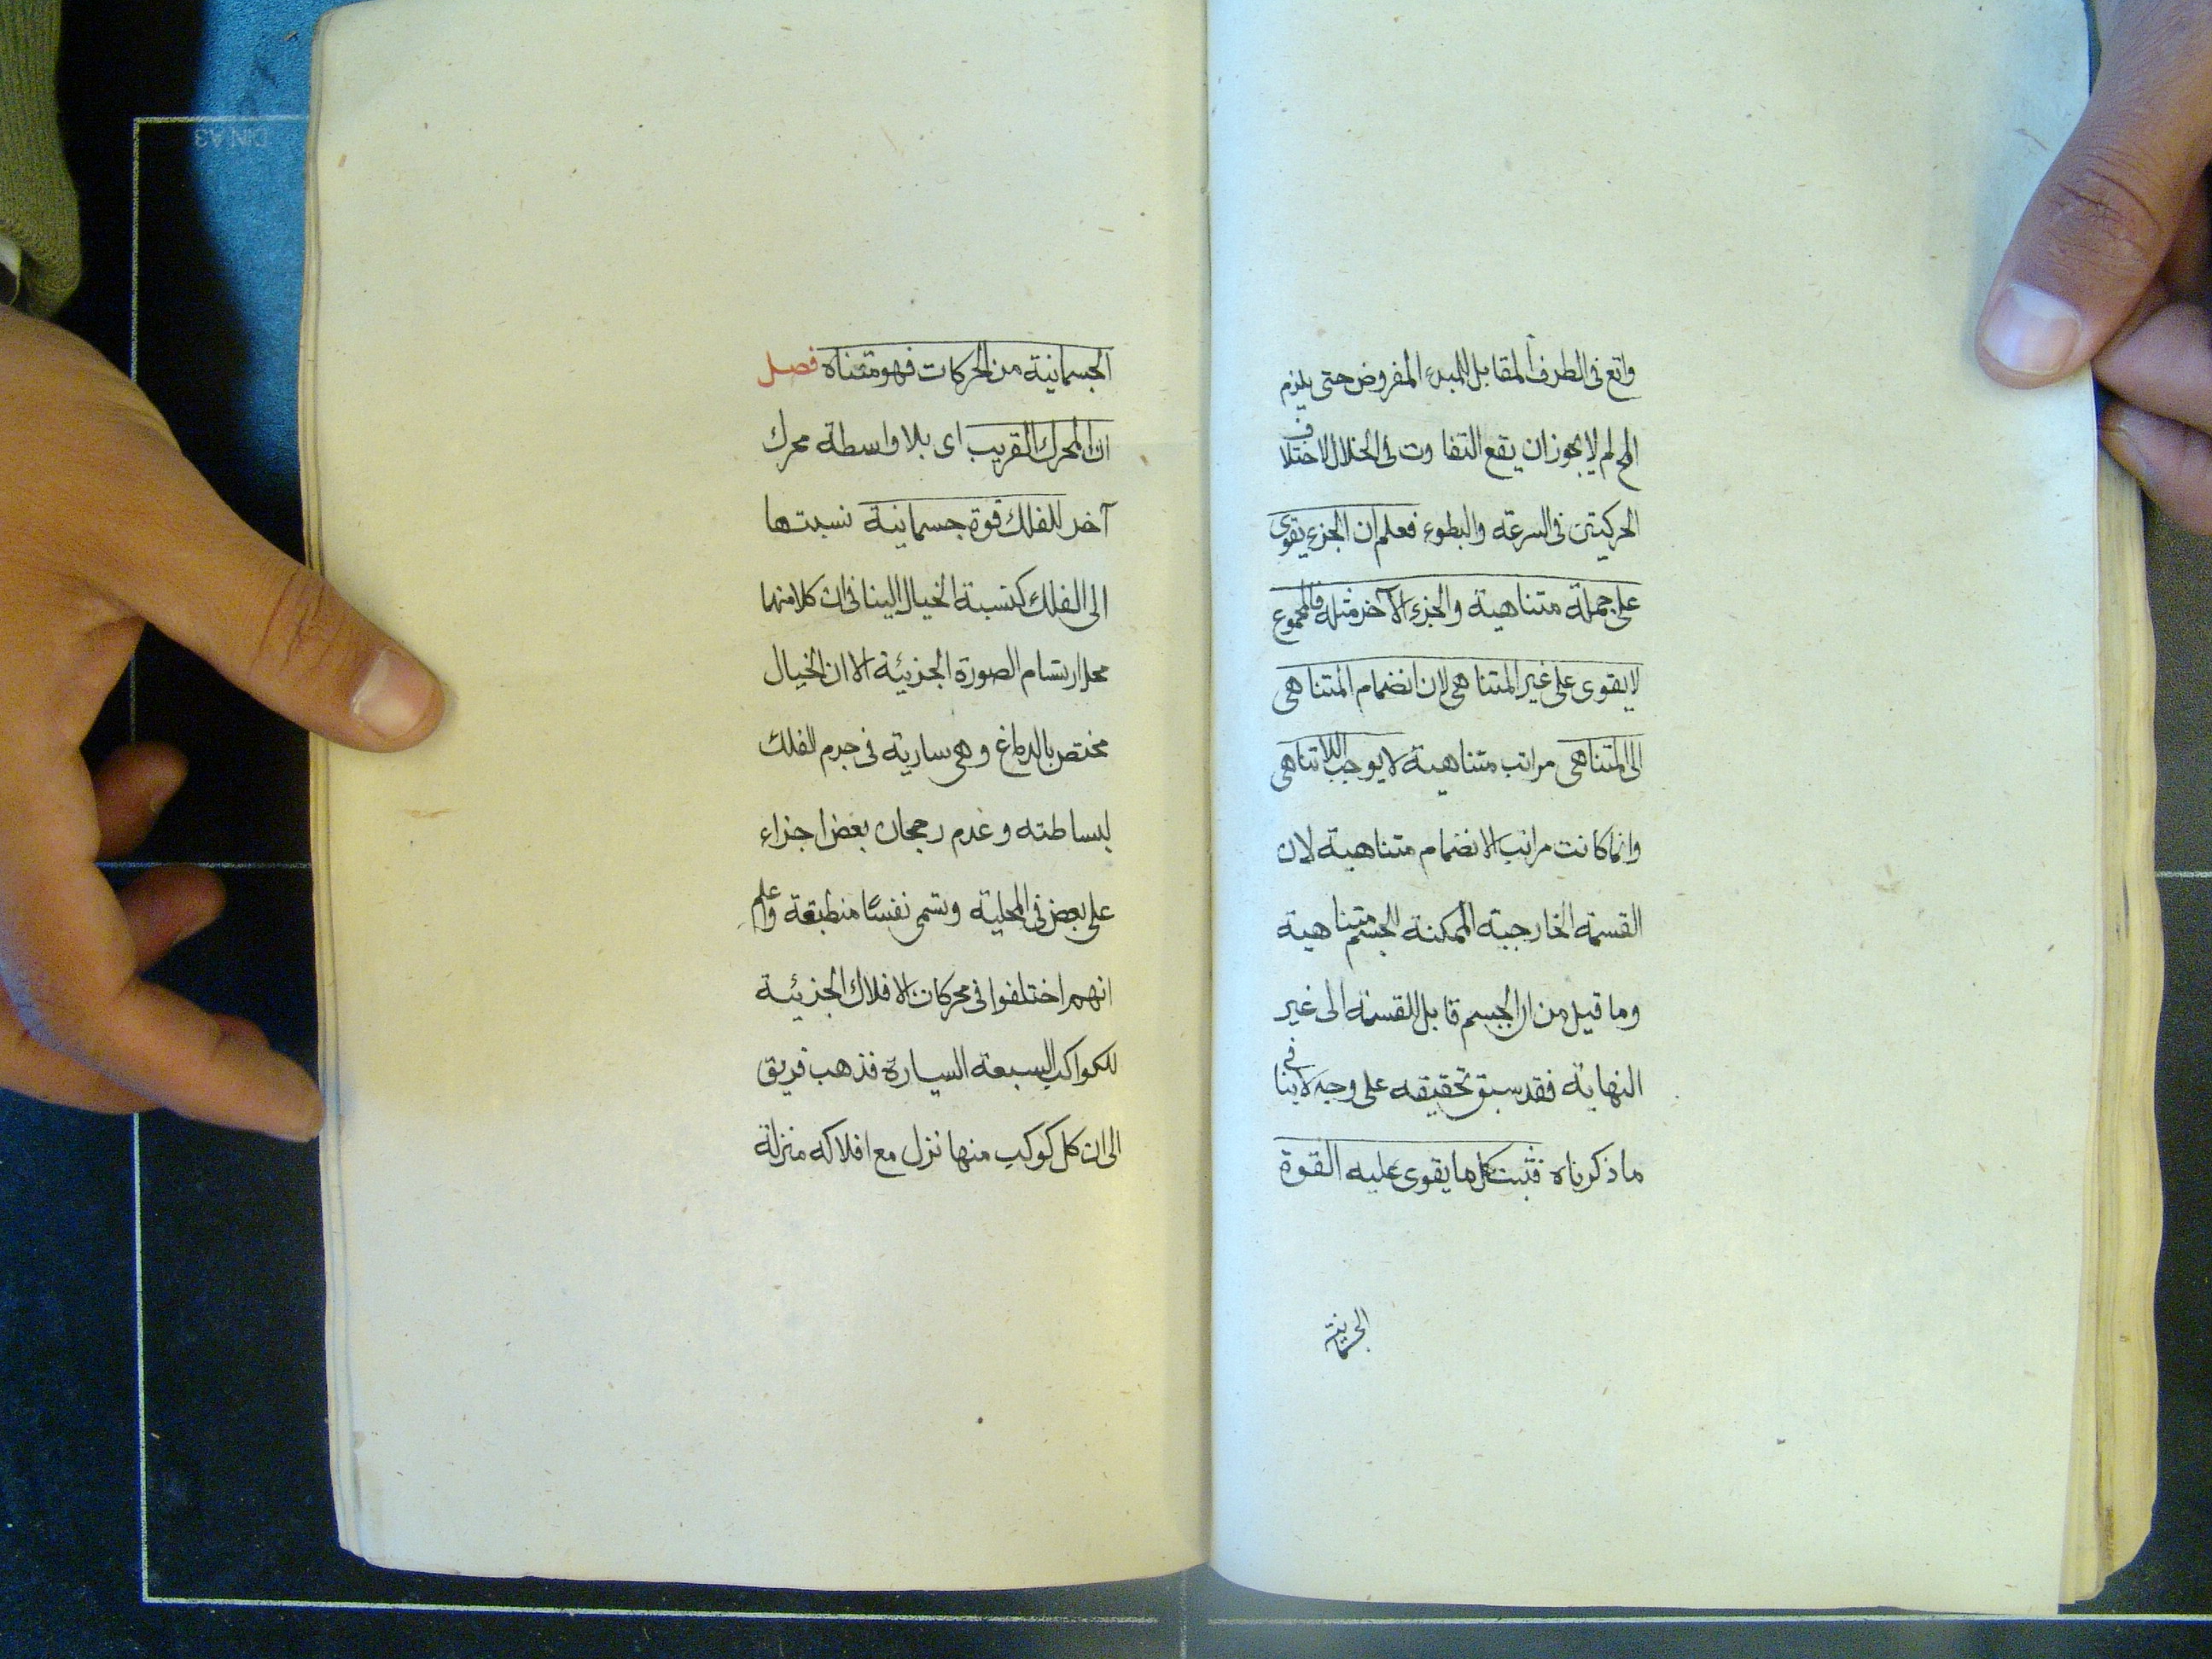 واقع فى الطرف المقابل للمبدء المفروض حتى يلزم
المح لم لا يجوز ان يقع التفاوت فى الخلال لاختلاف
الحركتين فى السرعة والبطوء فعلم ان الجزء يقوى
على جملة متناهية والجزء الآخر مثله فالمجموع
لا يقوى على غير المتناهى لان انضمام المتناهى
الى المتناهى مراتب متناهية لا يوجب اللاتناهى
وانما كانت مراتب الانضمام متناهية لان
القسمة الخارجية الممكنة للجسم متناهية
وما قيل من ان الجسم قابل للقسمة الى غير
النهاية فقد سبق تحقيقه على وجه لا ينافى
ما ذكرناه فثبت كل ما يقوى عليه القوة
الجسمانية
الجسمانية من الحركات فهو متناه فصل
ان المحرك القريب اى بلا واسطة محرك
آخر للفلك قوة جسمانية نسبتها
الى الفلك كنسبة الخيال الينا فى ان كلا منهما
محل ارتسام الصورة الجزئية الا ان الخيال
مختص بالدماغ وهى سارية فى جرم الفلك
لبساطته وعدم رجحان بعض اجزاء
على بعض فى المحلية وتسمى نفسًا منطبقة واعلم
انهم اختلفوا فى محركات الافلاك الجزئية
للكواكب السبعة السيارة فذهب فريق
الى ان كل كوكب منها نزل مع افلاكه منزلة
DIN A3